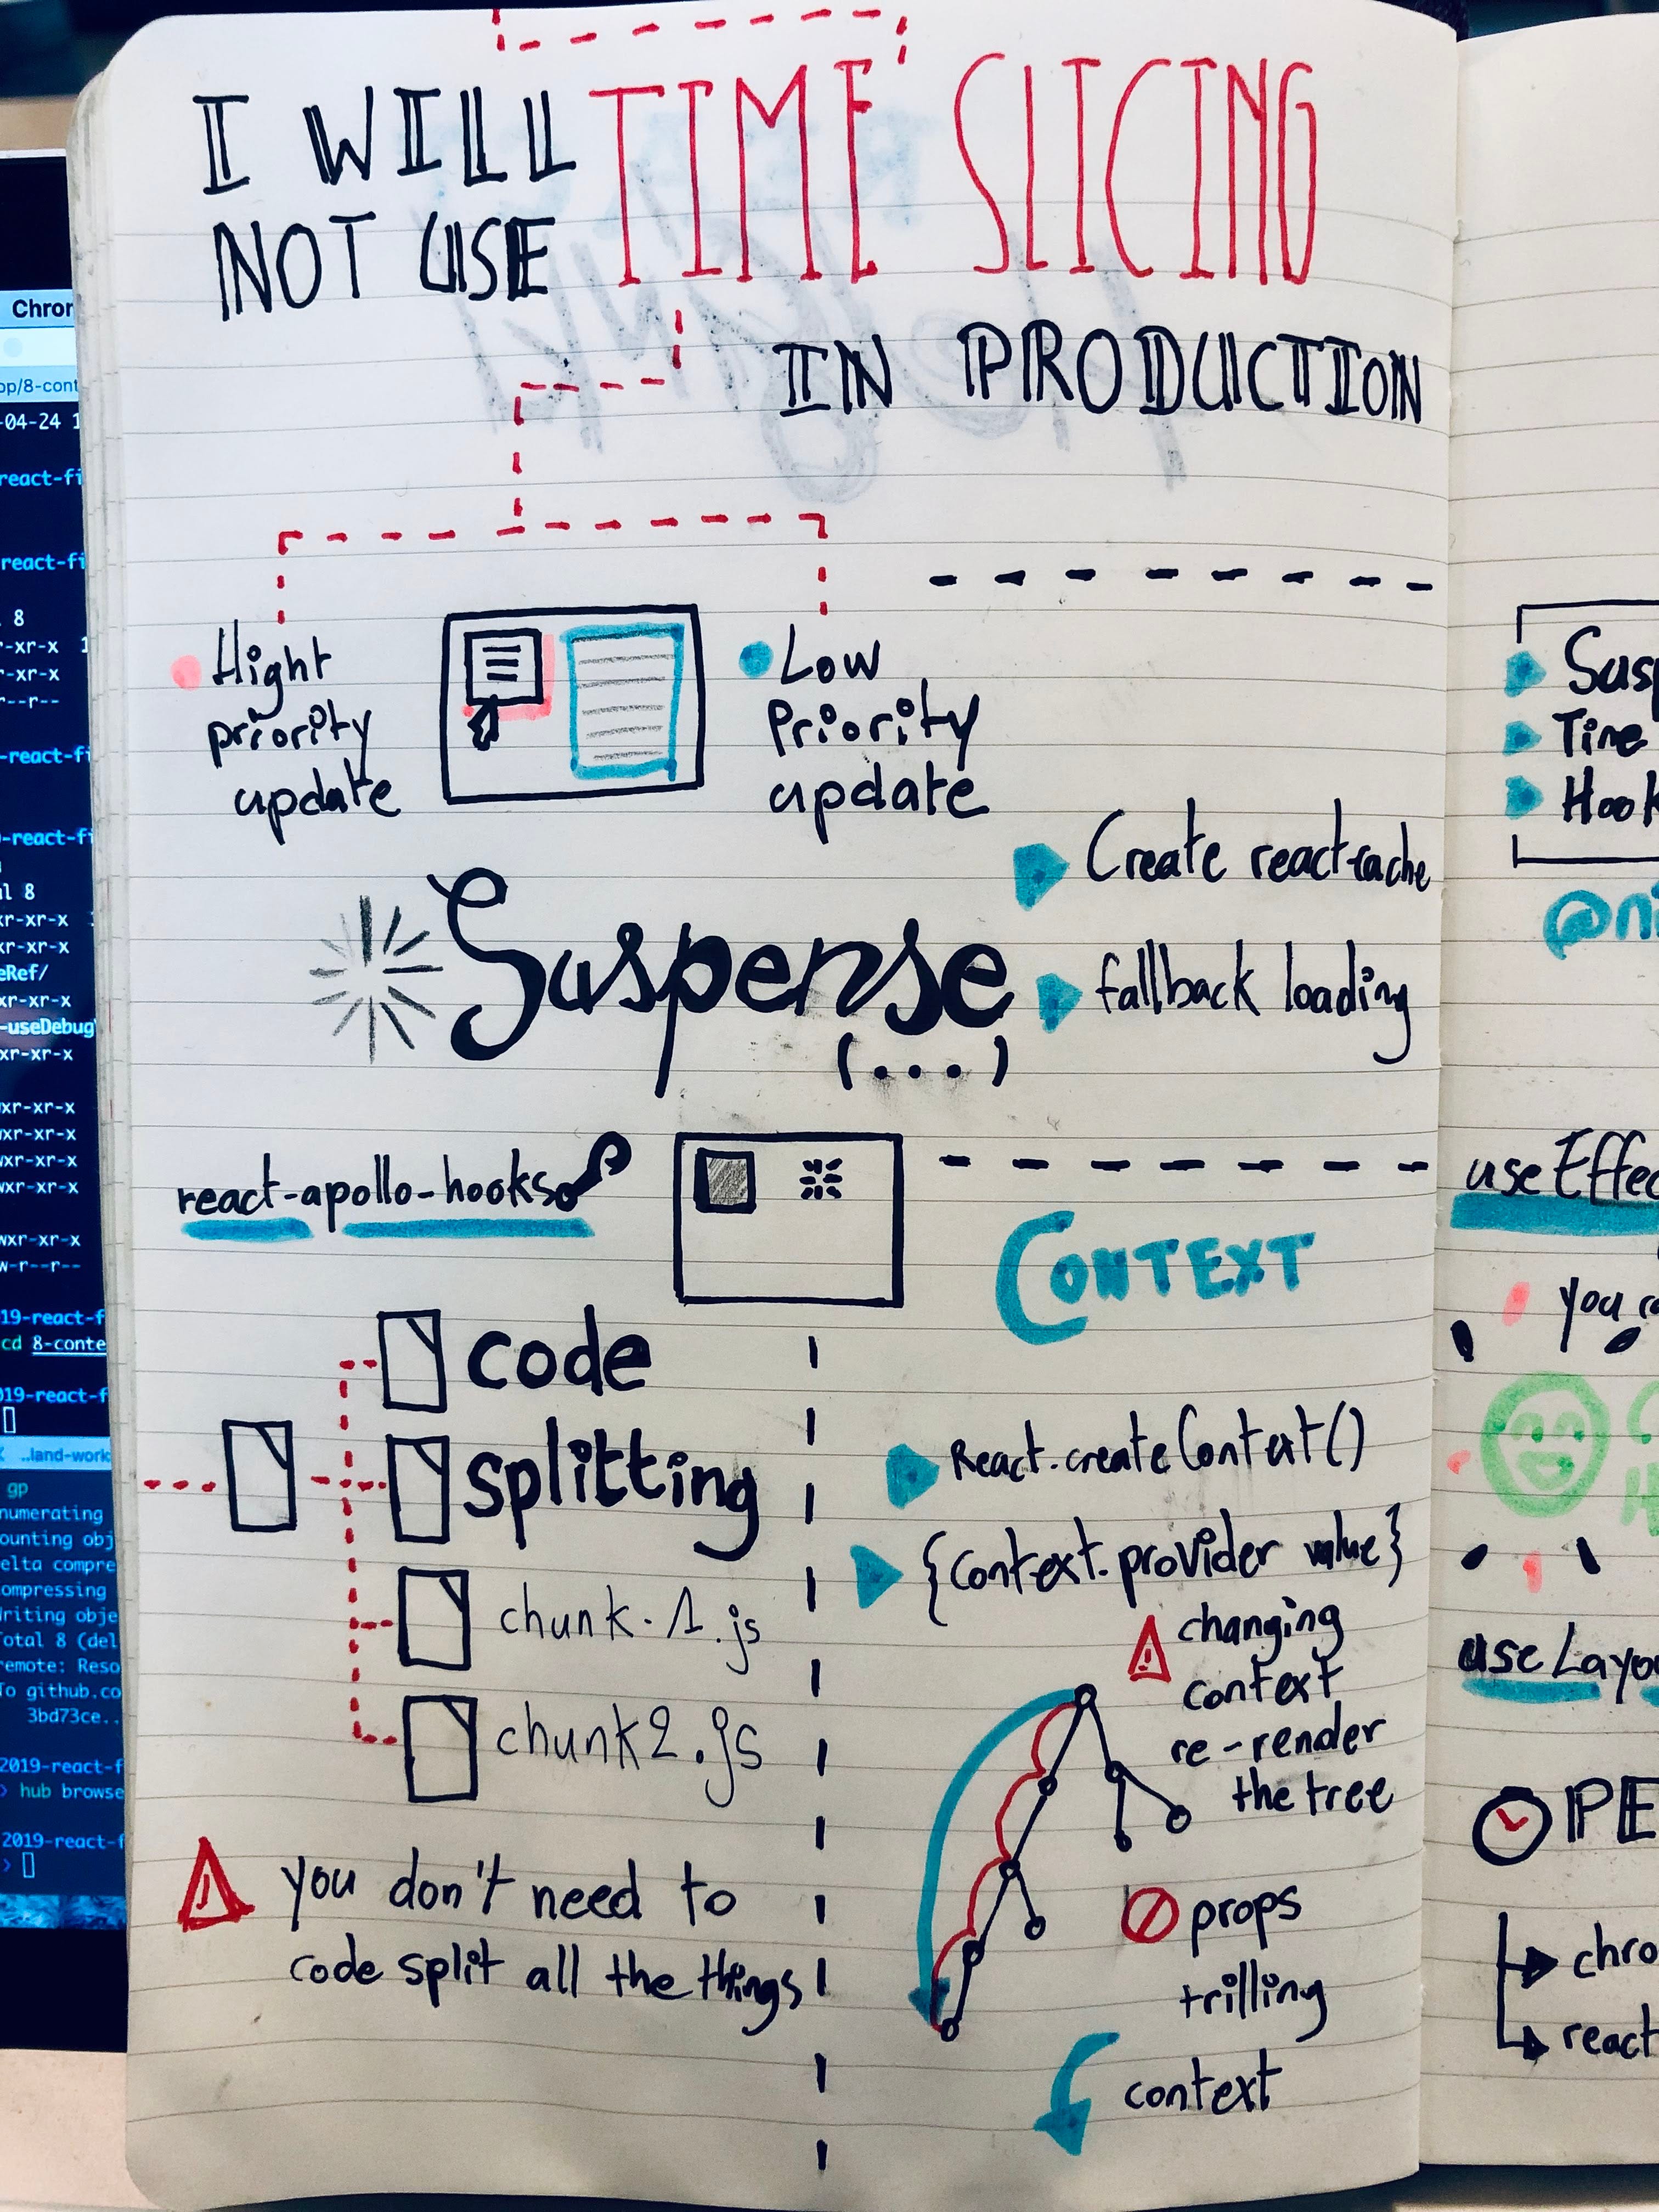 I WILL
NOT USE
TIME SLICING
IN PRODUCTION
Hight
priority
update
Low
Priority
update
Suspense
(...)
Create react-cache
fallback loading
react-apollo-hooks
code
splitting
chunk.1.js
chunk2.js
you don't need to
code split all the things
CONTEXT
React.createContext()
{Context.provider value}
changing
context
re-render
the tree
props
trilling
context
Susp
Time
Hook
@ni
use Effec
you
use Layou
PE
chro
react
Chron
op/8-cont
-04-24 1
react-fi
react-fi
8
r-xr-x
r-xr-x
--r--
-react-fi
-react-fi
al 8
xr-xr-x
xr-xr-x
eRef/
xr-xr-x
-useDebug
xr-xr-x
xr-xr-x
wxr-xr-x
wxr-xr-x
wxr-xr-x
wxr-xr-x
w-r--r--
19-react-f
cd 8-conte
019-react-f
..land-work
gp
numerating
ounting obj
elta compre
ompressing
Writing obje
Total 8 (del
remote: Reso
To github.co
3bd73ce..
2019-react-f
hub browse
2019-react-f